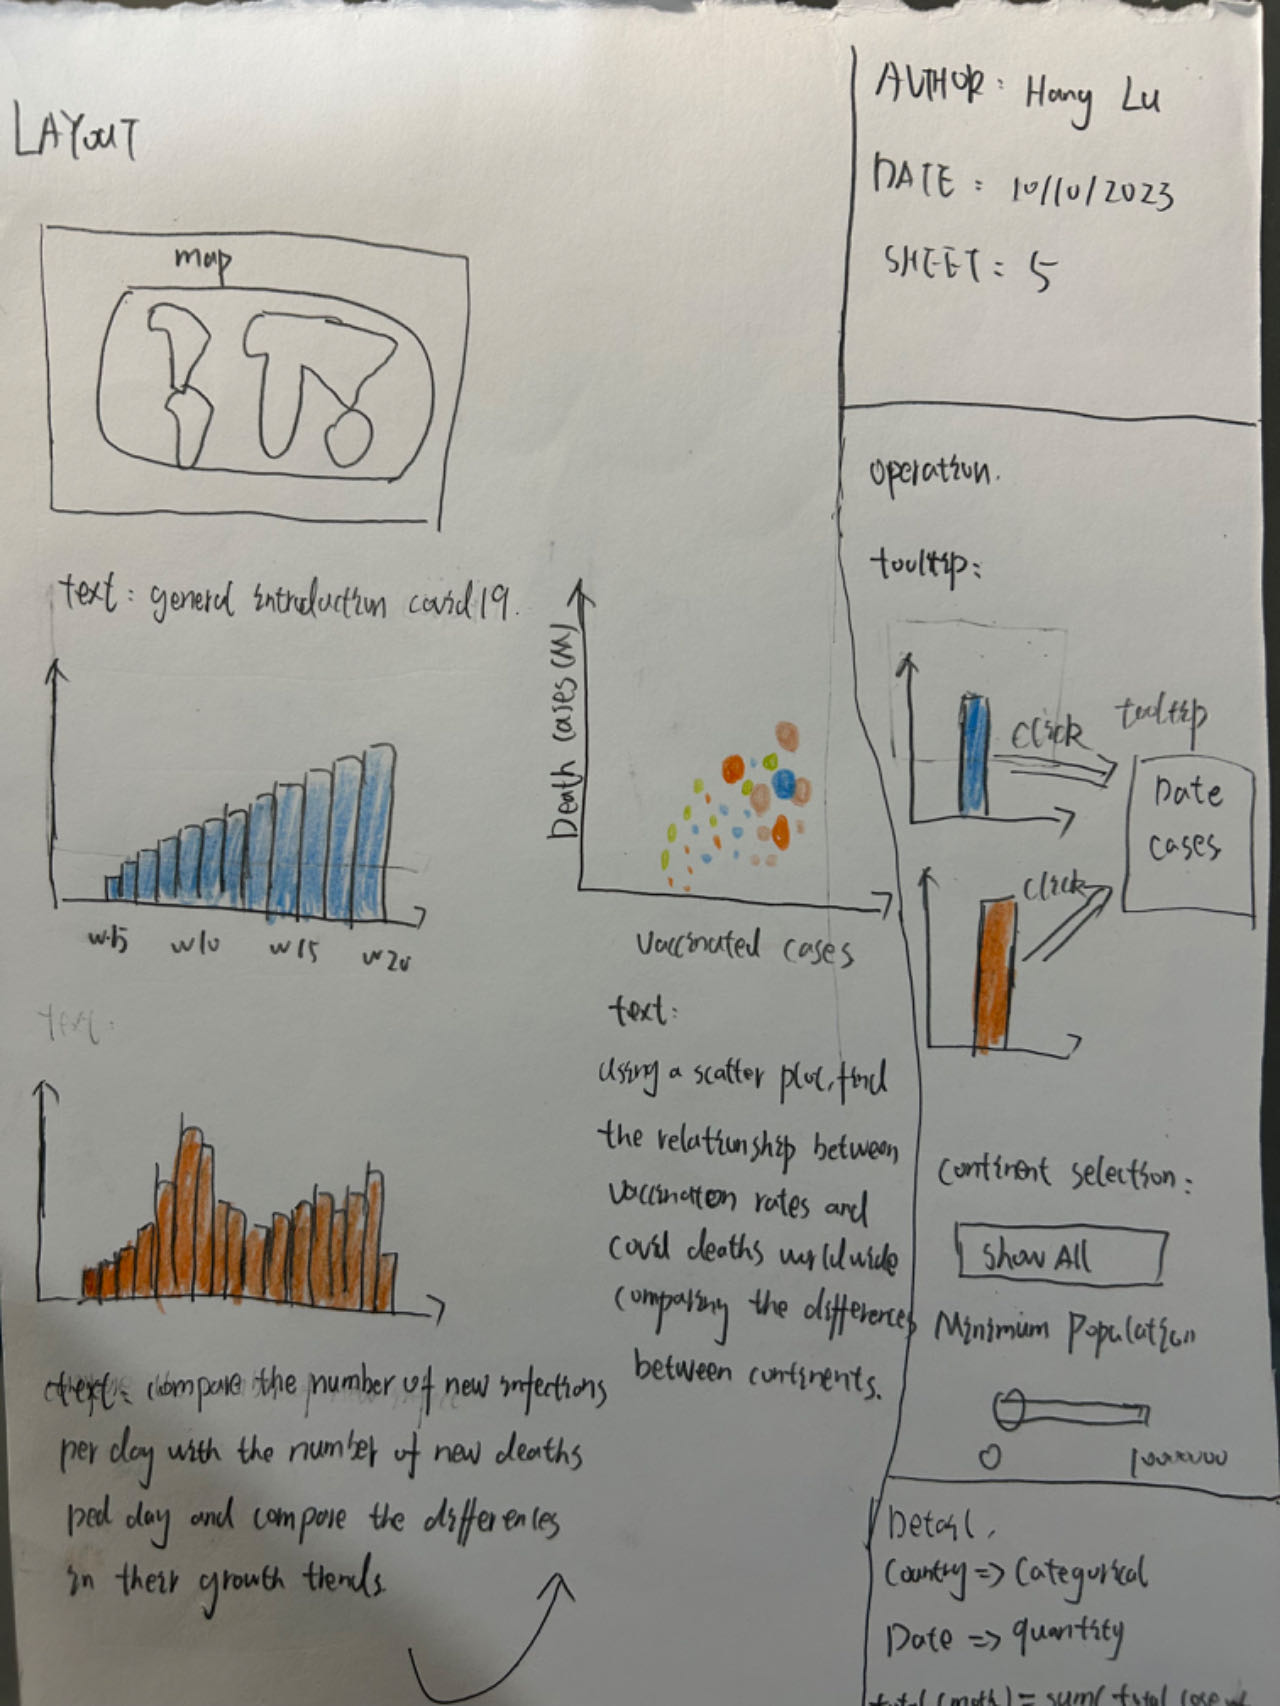 LAYOUT
map
text: general introduction covid 19.
w15
w10
w15
w20
text:
text: compare the number of new infections
per day with the number of new deaths
ped day and compare the differences
in their growth trends.
Death cases (M)
Vaccinated cases
text:
using a scatter plot, find
the relationship between
vaccination rates and
covid deaths worldwide
comparing the differences
between continents.
AUTHOR: Hang Lu
DATE: 10/10/2023
SHEET: 5
operation.
tooltip:
click
tooltip
Date
cases
click
continent selection:
Show All
Minimum Population
0
Detail.
Country => Categorical
Date => quantity
= sum( total case